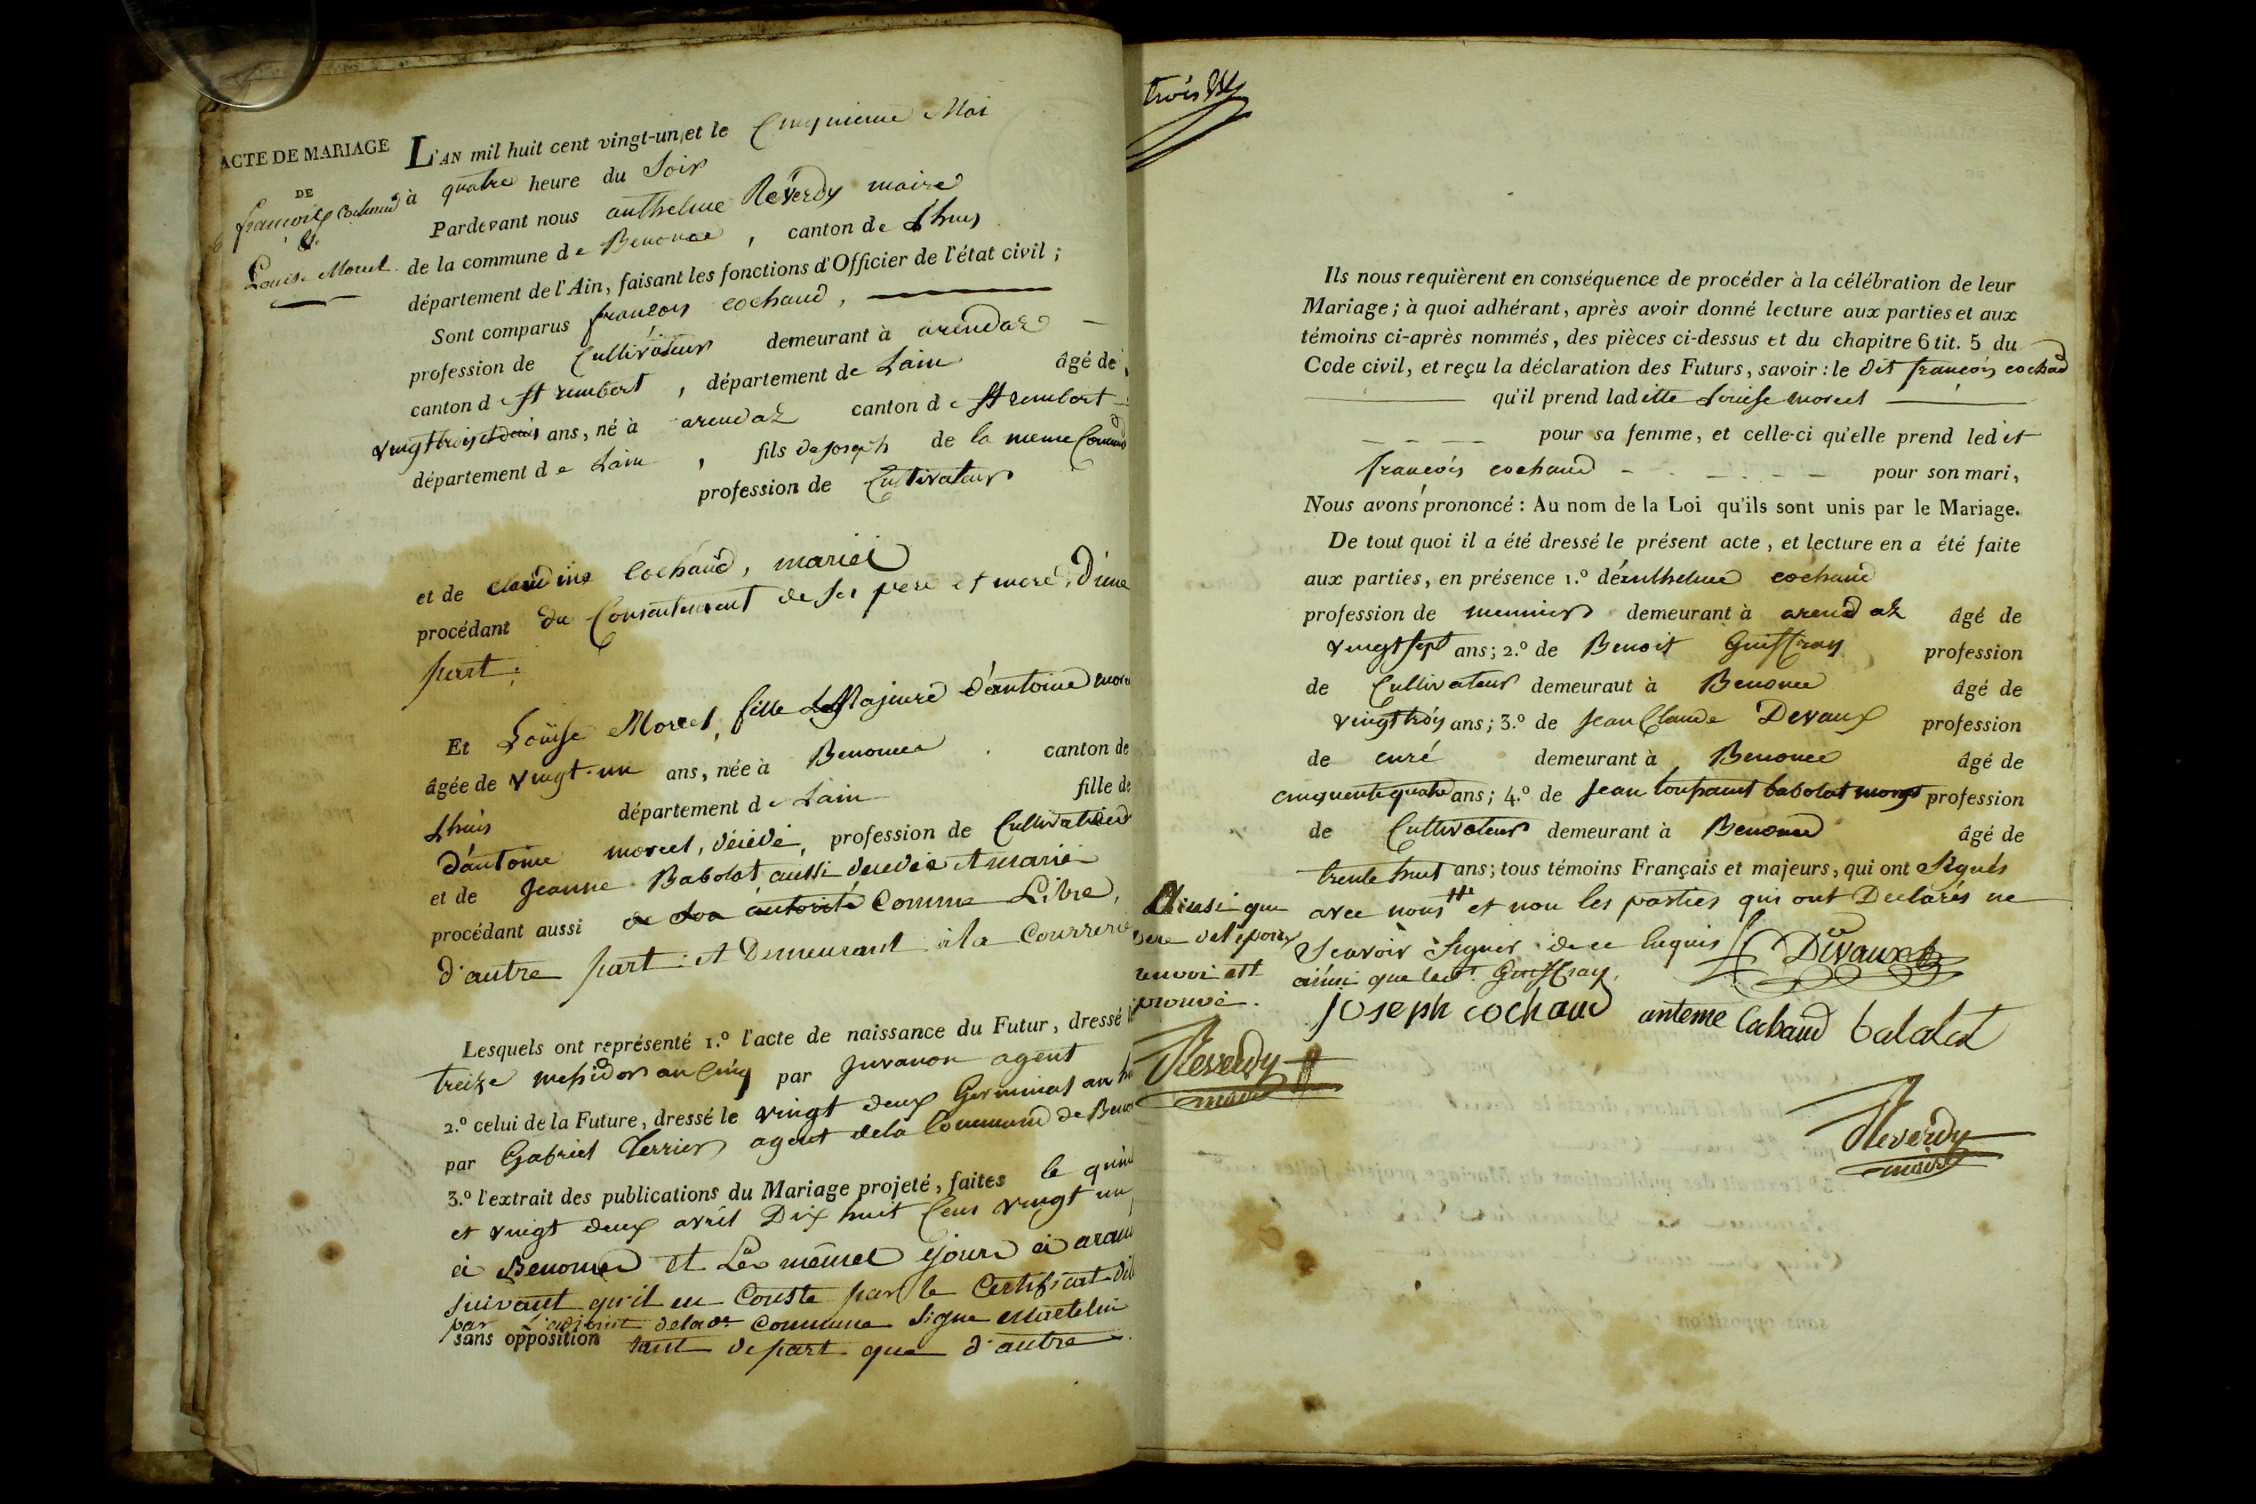 ACTE DE MARIAGE
DE
françois Cochaud
&
Louise Morel
L'AN mil huit cent vingt-un, et le Cinquieme Mai
à quatre heure du Soir
Pardevant nous anthelme Réverdy maire
de la commune de Benonce, canton de Lhuis
département de l'Ain, faisant les fonctions d'Officier de l'état civil ;
Sont comparus françois cochaud,
profession de Cultivateur demeurant à arendaz
canton de St rembert, département de Lain âgé de
vingt trois et demi ans, né à arendaz canton de St rembert
département de Lain, fils de joseph de la meme Commune
profession de Cultivateur
et de claudine Cochaud, mariéi
procédant du Consentement de ses pere et mere, D'une
part.
Et Louise Morel, fille Majeure d'antoine morel
âgée de vingt-un ans, née à Benonce canton de
Lhuis département de Lain fille de
D'antoine morel, décédé, profession de Cultivateur
et de Jeanne Babolat aussi decedée et marié
procédant aussi de son autorité Comme Libre,
d'autre part et Demeurant à la Courrerie
Lesquels ont représenté 1.º l'acte de naissance du Futur, dressé le
treize messidor an Cinq par Juvanon agent
2.º celui de la Future, dressé le vingt deux Germinal an
par Gabriel Terrier agent de la Commune de
3.º l'extrait des publications du Mariage projeté, faites le
et vingt deux avril Dix huit Cens vingt un
à Benonce et Les mêmes jours à
suivant qu'il en Conste par le Certificat
par L'adjoint de lade Commune Signé Martelin
sans opposition tant de part que d'autre.
trois
Ils nous requièrent en conséquence de procéder à la célébration de leur
Mariage ; à quoi adhérant, après avoir donné lecture aux parties et aux
témoins ci-après nommés, des pièces ci-dessus et du chapitre 6 tit. 5 du
Code civil, et reçu la déclaration des Futurs, savoir : le dit françois cochad
qu'il prend laditte Louise morel
pour sa femme, et celle-ci qu'elle prend ledit
françois cochaud pour son mari,
Nous avons prononcé : Au nom de la Loi qu'ils sont unis par le Mariage.
De tout quoi il a été dressé le présent acte, et lecture en a été faite
aux parties, en présence 1.º d'anthelme cochaud
profession de meunier demeurant à arendaz âgé de
vingt sept ans ; 2.º de Benoit Guiffray profession
de Cultivateur demeuraut à Benonce âgé de
vingt trois ans ; 3.º de Jean Claude Devaux profession
de curé demeurant à Benonce âgé de
cinquente quatre ans ; 4.º de Jean babolat profession
de Cultivateur demeurant à Benonce âgé de
trente huit ans ; tous témoins Français et majeurs, qui ont Signés
avec nous # et non les parties qui ont Declarés ne
Scavoir Signer de ce Enquis
ainsi que led. Guiffray.
# Ainsi que
pere de l'epoux
renvoi est
prouvé.
Reverdy
maire
Devaux
joseph cochaud
anteme Cochaud
balalat
Reverdy
maire